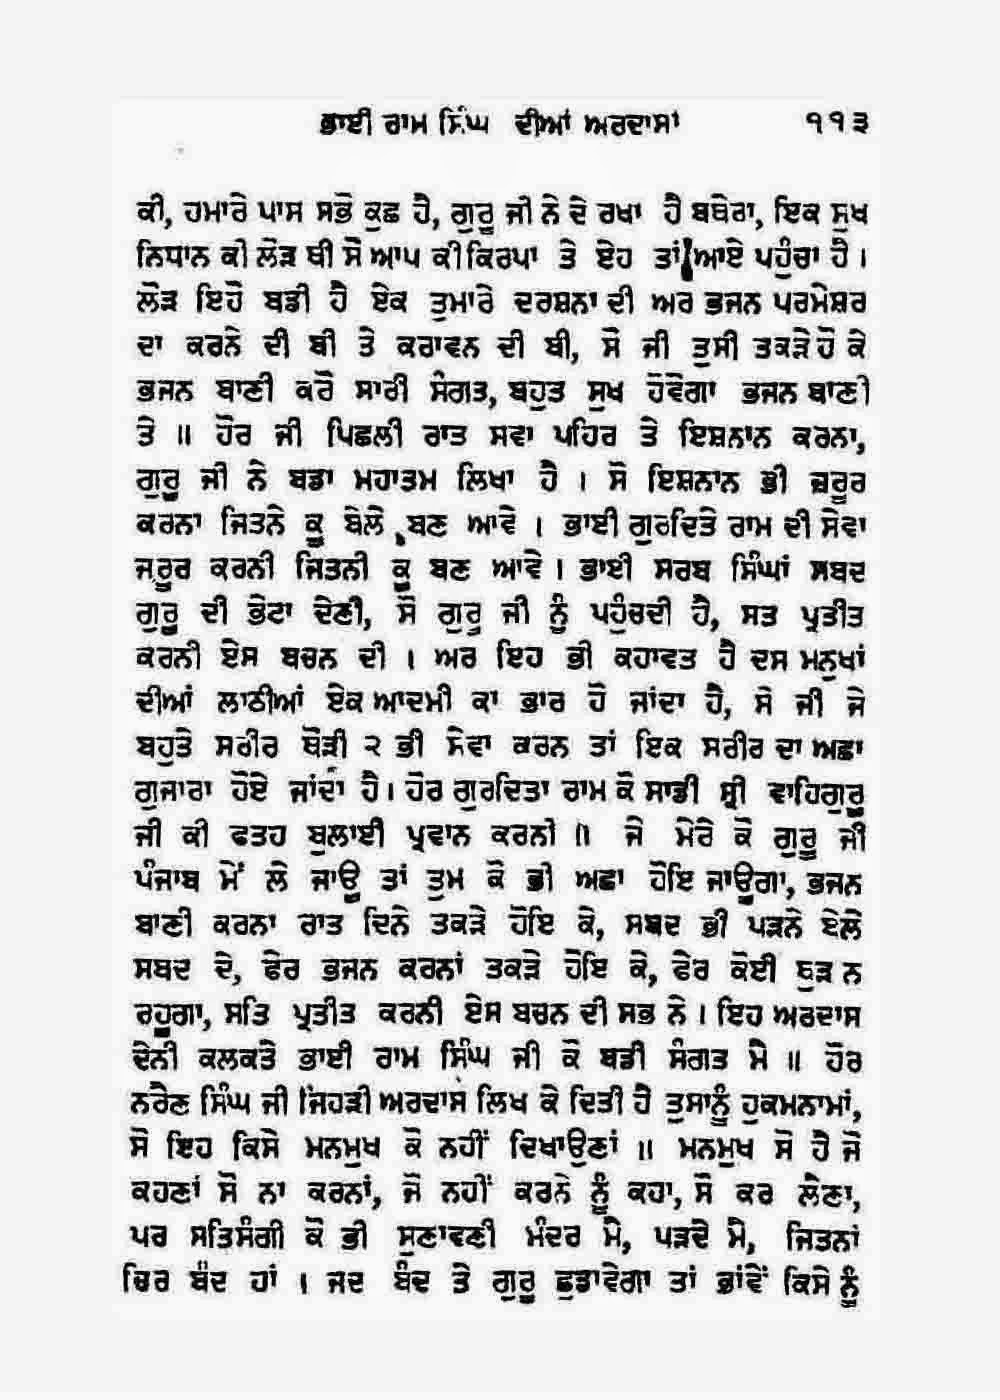 ਭਾਈ ਰਾਮ ਸਿੰਘ ਦੀਆਂ ਅਰਦਾਸਾਂ ੧੧੩
ਕੀ, ਹਮਾਰੇ ਪਾਸ ਸਭੋ ਕੁਛ ਹੈ, ਗੁਰੂ ਜੀ ਨੇ ਦੇ ਰਖਾ ਹੈ ਬਥੇਰਾ, ਇਕ ਸੁਖ
ਨਿਧਾਨ ਕੀ ਲੋੜ ਥੀ ਸੋ ਆਪ ਕੀ ਕਿਰਪਾ ਤੇ ਏਹ ਤਾਂ ਆਏ ਪਹੁੰਚਾ ਹੈ ।
ਲੋੜ ਇਹੋ ਬਡੀ ਹੈ ਏਕ ਤੁਮਾਰੇ ਦਰਸ਼ਨਾ ਦੀ ਅਰ ਭਜਨ ਪਰਮੇਸ਼ਰ
ਦਾ ਕਰਨੇ ਦੀ ਬੀ ਤੇ ਕਰਾਵਨ ਦੀ ਬੀ, ਸੋ ਜੀ ਤੁਸੀ ਤਕੜੇ ਹੋ ਕੇ
ਭਜਨ ਬਾਣੀ ਕਰੋ ਸਾਰੀ ਸੰਗਤ, ਬਹੁਤ ਸੁਖ ਹੋਵੇਗਾ ਭਜਨ ਬਾਣੀ
ਤੇ ॥ ਹੋਰ ਜੀ ਪਿਛਲੀ ਰਾਤ ਸਵਾ ਪਹਿਰ ਤੇ ਇਸ਼ਨਾਨ ਕਰਨਾ,
ਗੁਰੂ ਜੀ ਨੇ ਬਡਾ ਮਹਾਤਮ ਲਿਖਾ ਹੈ । ਸੋ ਇਸ਼ਨਾਨ ਭੀ ਜ਼ਰੂਰ
ਕਰਨਾ ਜਿਤਨੇ ਕੂ ਬੇਲੇ ਬਣ ਆਵੇ । ਭਾਈ ਗੁਰਦਿਤੇ ਰਾਮ ਦੀ ਸੇਵਾ
ਜਰੂਰ ਕਰਨੀ ਜਿਤਨੀ ਕੂ ਬਣ ਆਵੇ । ਭਾਈ ਸਰਬ ਸਿੰਘਾਂ ਸਬਦ
ਗੁਰੂ ਦੀ ਭੇਟਾ ਦੇਣੀ, ਸੋ ਗੁਰੂ ਜੀ ਨੂੰ ਪਹੁੰਚਦੀ ਹੈ, ਸਤ ਪ੍ਰਤੀਤ
ਕਰਨੀ ਏਸ ਬਚਨ ਦੀ । ਅਰ ਇਹ ਭੀ ਕਹਾਵਤ ਹੈ ਦਸ ਮਨੁਖਾਂ
ਦੀਆਂ ਲਾਠੀਆਂ ਏਕ ਆਦਮੀ ਕਾ ਭਾਰ ਹੋ ਜਾਂਦਾ ਹੈ, ਸੋ ਜੀ ਜੇ
ਬਹੁਤੇ ਸਰੀਰ ਥੋੜੀ ੨ ਭੀ ਸੇਵਾ ਕਰਨ ਤਾਂ ਇਕ ਸਰੀਰ ਦਾ ਅਛਾ
ਗੁਜਾਰਾ ਹੋਏ ਜਾਂਦਾ ਹੈ । ਹੋਰ ਗੁਰਦਿਤਾ ਰਾਮ ਕੋ ਸਾਡੀ ਸ੍ਰੀ ਵਾਹਿਗੁਰੂ
ਜੀ ਕੀ ਫਤਹ ਬੁਲਾਈ ਪ੍ਰਵਾਨ ਕਰਨੀ ॥ ਜੇ ਮੇਰੇ ਕੋ ਗੁਰੂ ਜੀ
ਪੰਜਾਬ ਮੇਂ ਲੇ ਜਾਊ ਤਾਂ ਤੁਮ ਕੋ ਭੀ ਅਛਾ ਹੋਇ ਜਾਊਗਾ, ਭਜਨ
ਬਾਣੀ ਕਰਨਾ ਰਾਤ ਦਿਨੇ ਤਕੜੇ ਹੋਇ ਕੇ, ਸਬਦ ਭੀ ਪੜਨੇ ਏਲੇ
ਸਬਦ ਦੇ, ਫੇਰ ਭਜਨ ਕਰਨਾਂ ਤਕੜੇ ਹੋਇ ਕੇ, ਫੇਰ ਕੋਈ ਥੁੜ ਨ
ਰਹੂਗਾ, ਸਤਿ ਪ੍ਰਤੀਤ ਕਰਨੀ ਏਸ ਬਚਨ ਦੀ ਸਭ ਨੇ । ਇਹ ਅਰਦਾਸ
ਦੇਨੀ ਕਲਕਤੇ ਭਾਈ ਰਾਮ ਸਿੰਘ ਜੀ ਕੋ ਬਡੀ ਸੰਗਤ ਮੈ ॥ ਹੋਰ
ਨਰੈਣ ਸਿੰਘ ਜੀ ਜਿਹੜੀ ਅਰਦਾਸ ਲਿਖ ਕੇ ਦਿਤੀ ਹੈ ਤੁਸਾਨੂੰ ਹੁਕਮਨਾਮਾਂ,
ਸੋ ਇਹ ਕਿਸੇ ਮਨਮੁਖ ਕੋ ਨਹੀਂ ਦਿਖਾਉਣਾਂ ॥ ਮਨਮੁਖ ਸੋ ਹੈ ਜੋ
ਕਹਣਾਂ ਸੋ ਨਾ ਕਰਨਾਂ, ਜੋ ਨਹੀਂ ਕਰਨੇ ਨੂੰ ਕਹਾ, ਸੋ ਕਰ ਲੈਣਾ,
ਪਰ ਸਤਿਸੰਗੀ ਕੋ ਭੀ ਸੁਣਾਵਣੀ ਮੰਦਰ ਮੈ, ਪੜਦੇ ਮੈ, ਜਿਤਨਾਂ
ਚਿਰ ਬੰਦ ਹਾਂ । ਜਦ ਬੰਦ ਤੇ ਗੁਰੂ ਛੁਡਾਵੇਗਾ ਤਾਂ ਭਾਂਵੇਂ ਕਿਸੇ ਨੂੰ